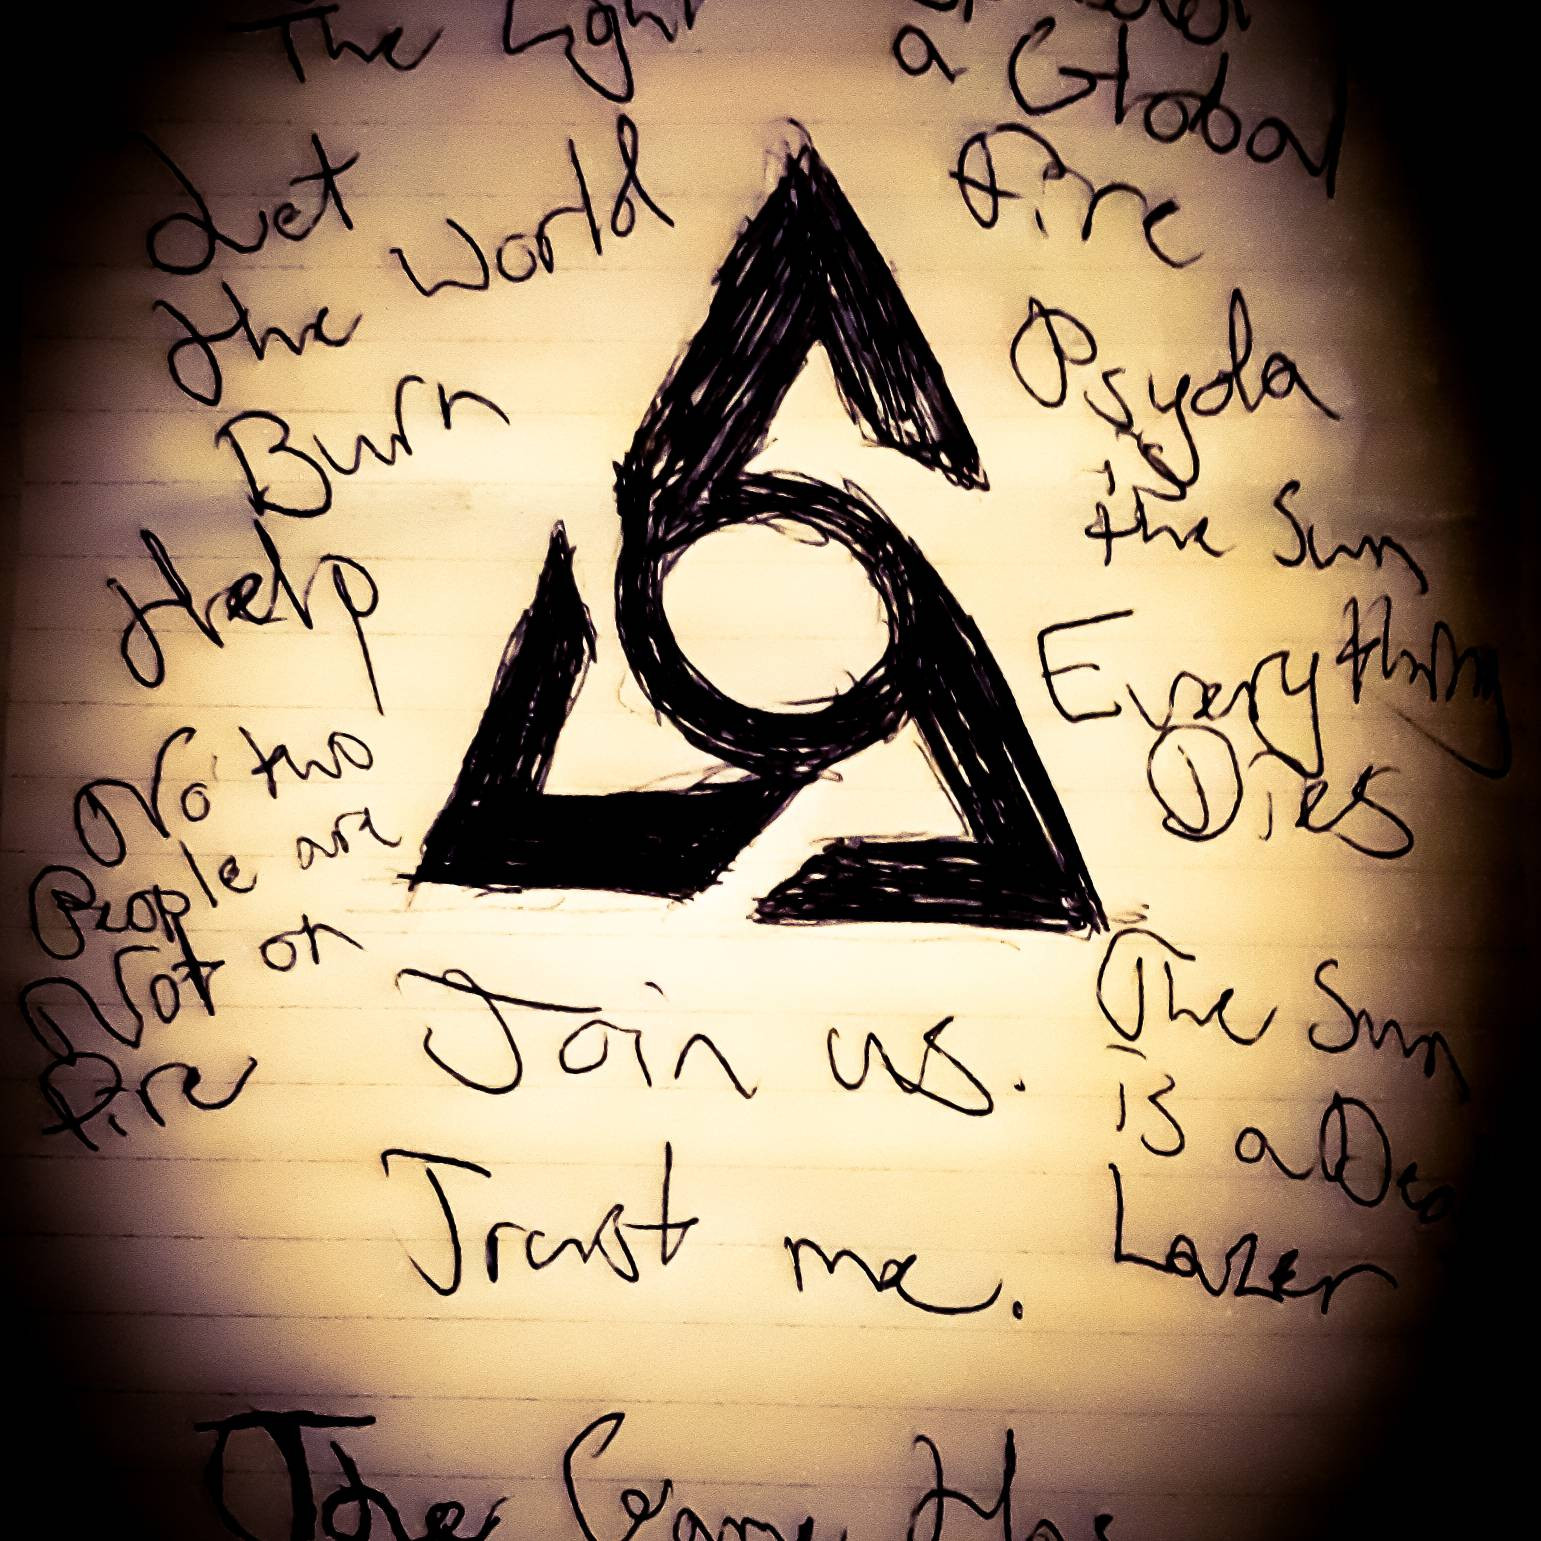 The Light
a Global
Fire
Let
the world
Burn
Help
No two
People are
Not on
Fire
Psyola
is
the Sun
Everything
Dies
The Sun
is a
Lazer
Join us.
Trust me.
The Game Has